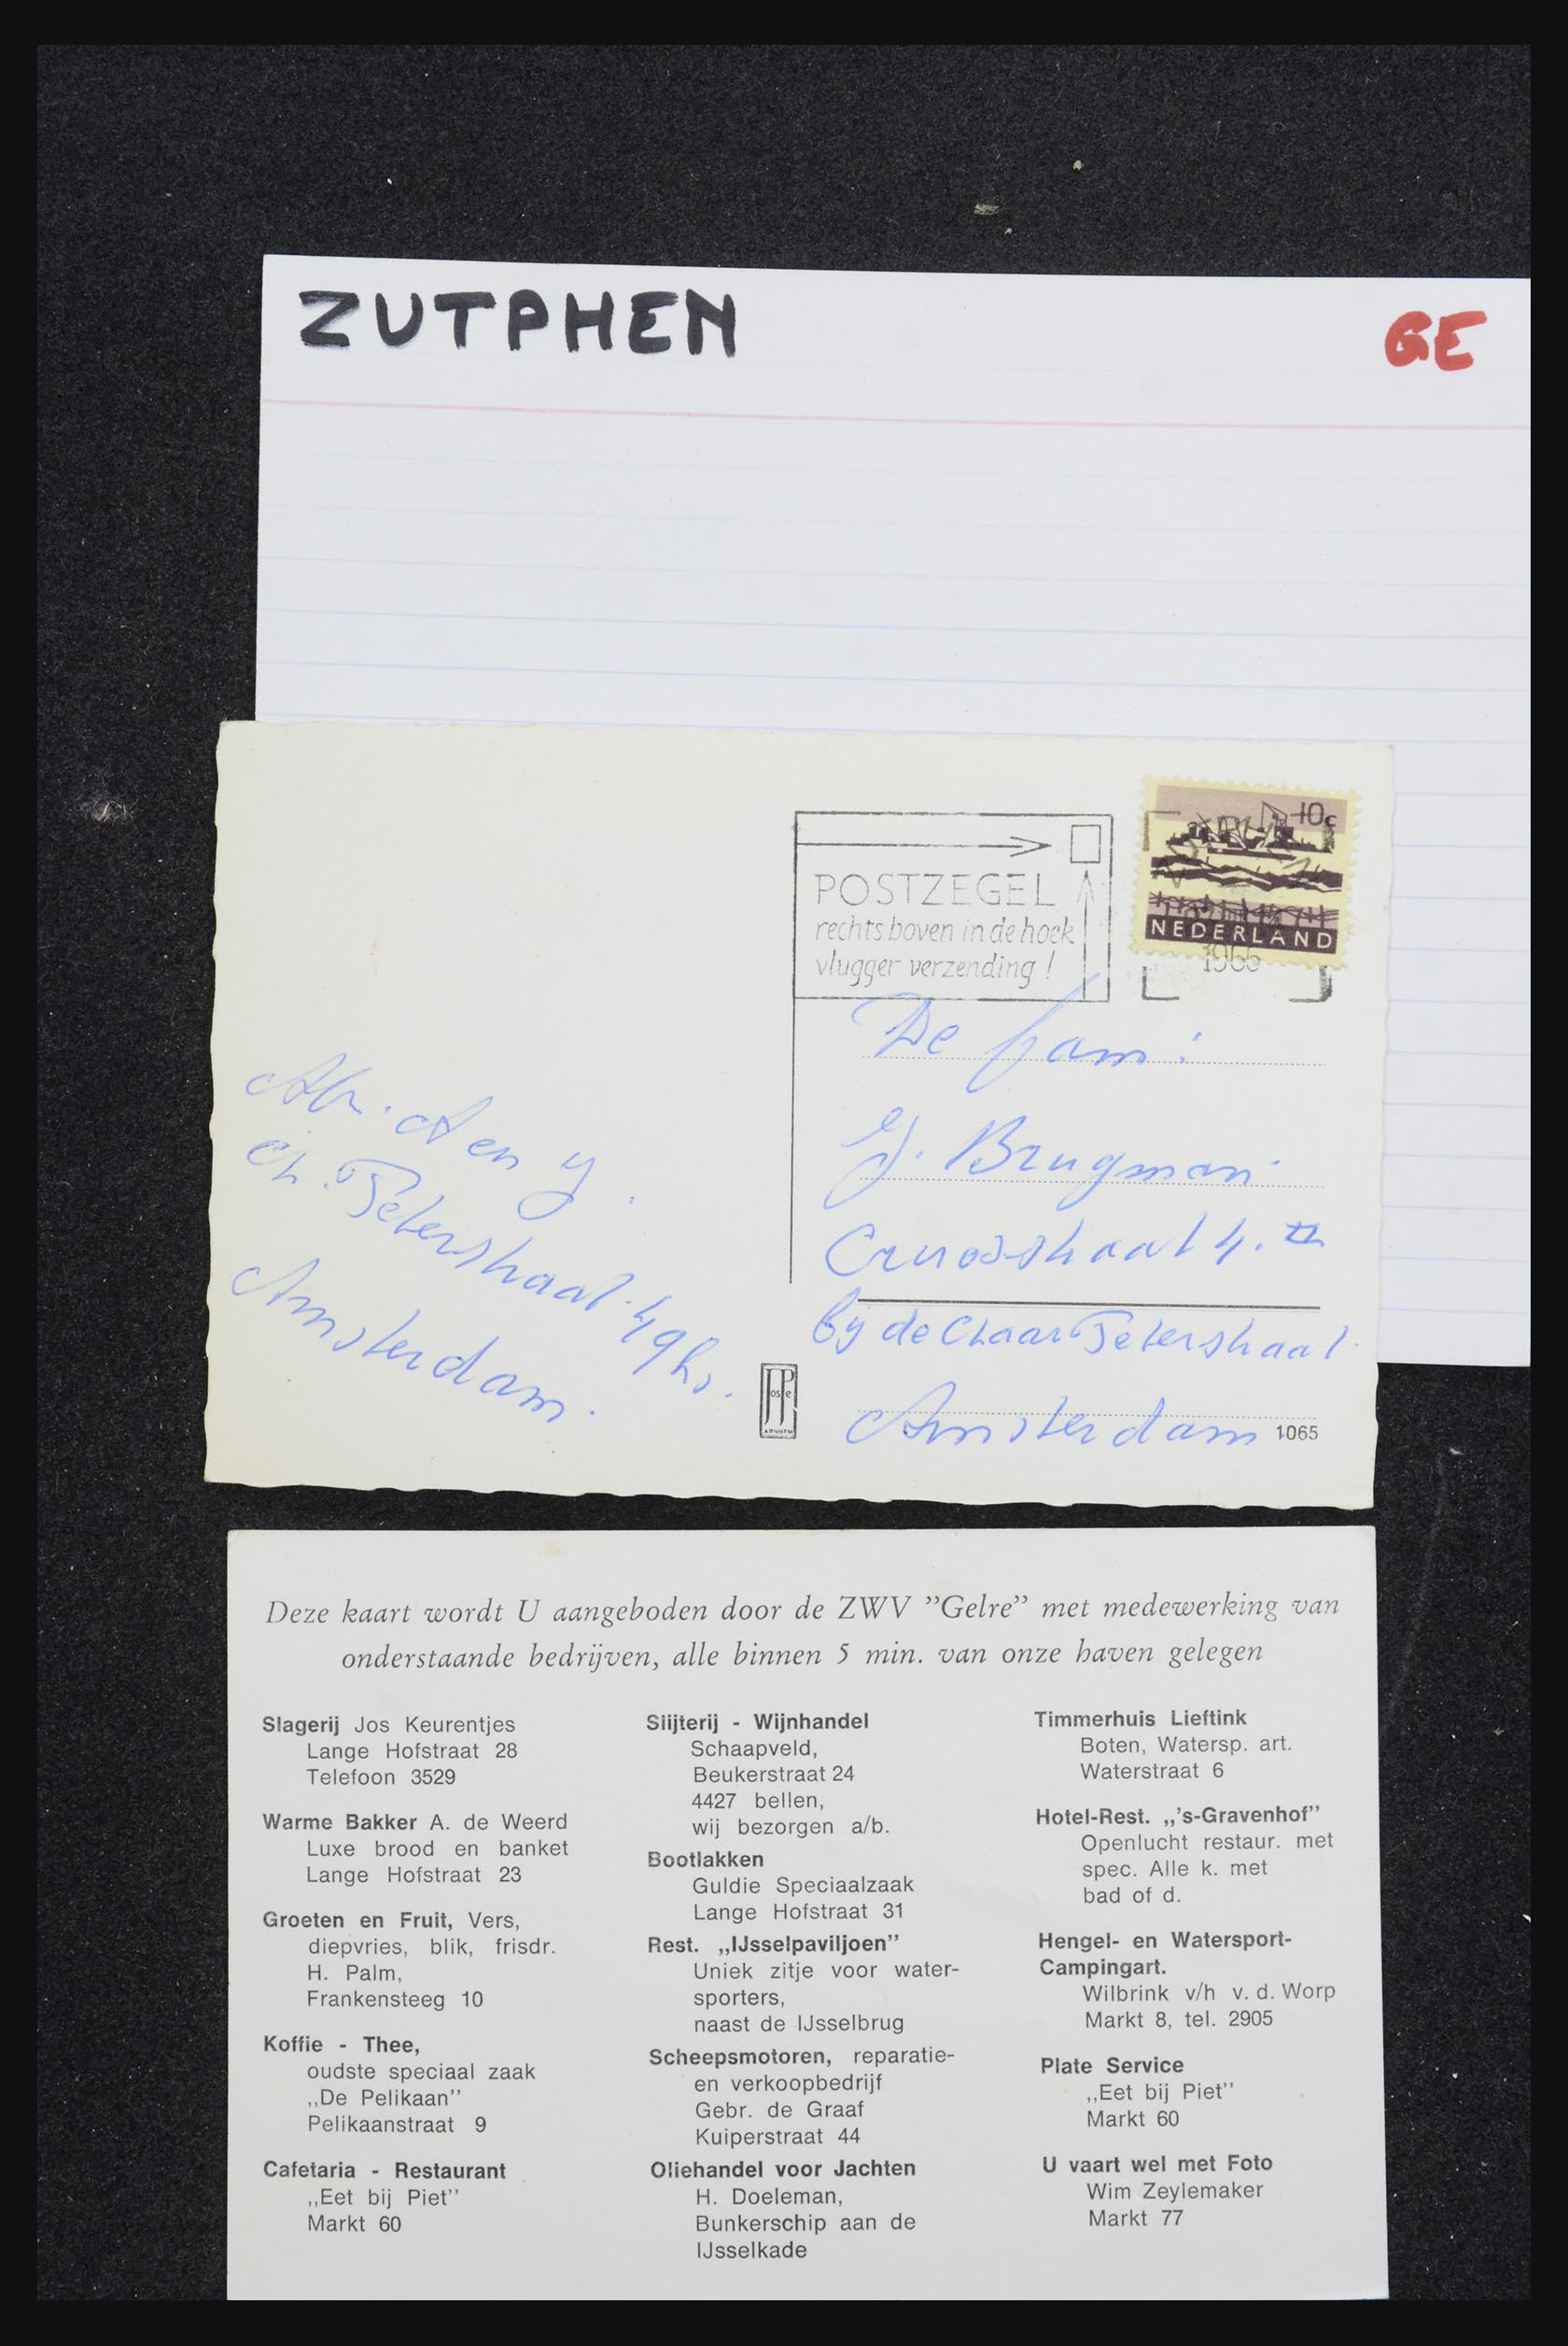 ZUTPHEN
GE
10c
NEDERLAND
POSTZEGEL
rechts boven in de hoek
vlugger verzending !
De fam:
J. Brugman
4. II
bij de
Amsterdam
1065
Afz. A en J.
49 hs.
Amsterdam.
JosPé
ARNHEM
Deze kaart wordt U aangeboden door de ZWV ”Gelre” met medewerking van
onderstaande bedrijven, alle binnen 5 min. van onze haven gelegen
Slagerij Jos Keurentjes
Lange Hofstraat 28
Telefoon 3529
Warme Bakker A. de Weerd
Luxe brood en banket
Lange Hofstraat 23
Groeten en Fruit, Vers,
diepvries, blik, frisdr.
H. Palm,
Frankensteeg 10
Koffie - Thee,
oudste speciaal zaak
,,De Pelikaan’’
Pelikaanstraat 9
Cafetaria - Restaurant
,,Eet bij Piet’’
Markt 60
Slijterij - Wijnhandel
Schaapveld,
Beukerstraat 24
4427 bellen,
wij bezorgen a/b.
Bootlakken
Guldie Speciaalzaak
Lange Hofstraat 31
Rest. ,,IJsselpaviljoen’’
Uniek zitje voor water-
sporters,
naast de IJsselbrug
Scheepsmotoren, reparatie-
en verkoopbedrijf
Gebr. de Graaf
Kuiperstraat 44
Oliehandel voor Jachten
H. Doeleman,
Bunkerschip aan de
IJsselkade
Timmerhuis Lieftink
Boten, Watersp. art.
Waterstraat 6
Hotel-Rest. ,,’s-Gravenhof’’
Openlucht restaur. met
spec. Alle k. met
bad of d.
Hengel- en Watersport-
Campingart.
Wilbrink v/h v. d. Worp
Markt 8, tel. 2905
Plate Service
,,Eet bij Piet’’
Markt 60
U vaart wel met Foto
Wim Zeylemaker
Markt 77